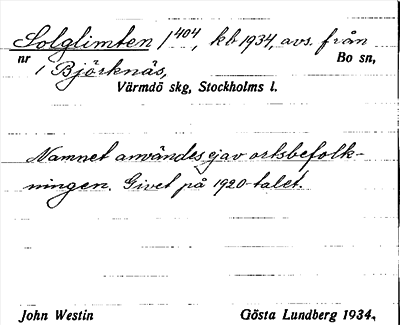 Solglimten 1⁴⁰⁴, kb 1934, avs. från
nr 1 Björknäs, Bo sn,
Värmdö skg, Stockholms l.
Namnet användes ej av ortsbefolk-
ningen. Givet på 1920-talet.
John Westin Gösta Lundberg 1934.